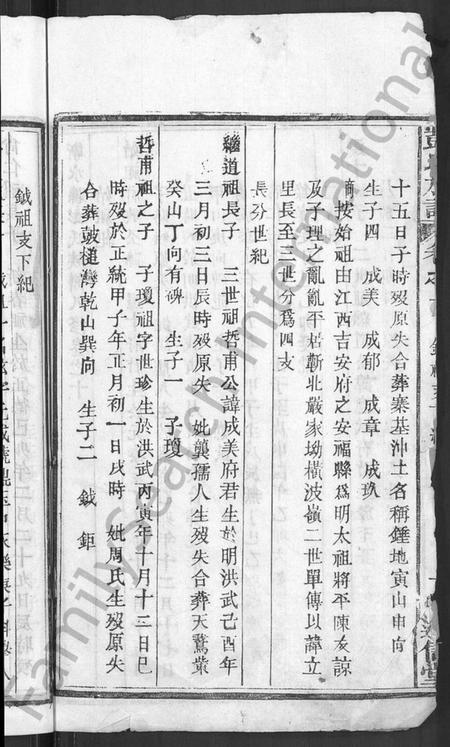 十五日子時歿原失合葬寨基沖土名稱錘地寅山申向
生子四 成美 成郁 成章 成玖
前按始祖由江西吉安府之安福縣爲明太祖將平陳友諒
及子理之亂亂平居蘄北嚴家坳橫波嶺二世單傳以諱立
里長至三世分爲四支
長分世紀
繼道祖長子 三世祖哲甫公諱成美府君生於明洪武己酉年
三月初三日辰時歿原失 妣龔孺人生歿失合葬天鵞
癸山丁向有碑 生子一 子瓊
哲甫祖之子 子瓊祖字世珍生於洪武丙寅年十月十三日巳
時歿於正統甲子年正月初一日戌時 妣周氏生歿原失
合葬鼓槌灣乾山巽向 生子二 鉞 鉅
鉞祖支下紀
FamilySearch International